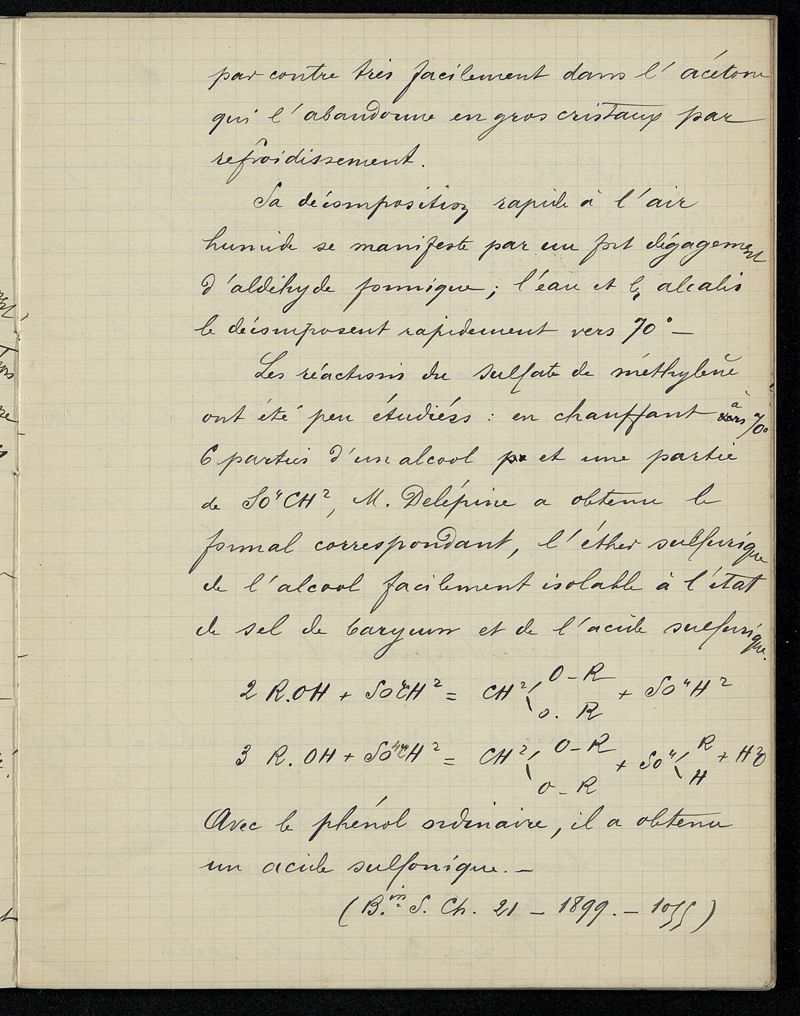 par contre très facilement dans l'acétone
qui l'abandonne en gros cristaux par
refroidissement.
Sa décomposition rapide à l'air
humide se manifeste par un fort dégagement
d'aldéhyde formique ; l'eau et les alcalis
le décomposent rapidement vers 70° —
Les réactions du sulfate de méthylène
ont été peu étudiées : en chauffant à 70°
6 parties d'un alcool et une partie
de SO⁴CH², M. Delépine a obtenu le
formal correspondant, l'éther sulfurique
de l'alcool facilement isolable à l'état
de sel de baryum et de l'acide sulfurique.
2 R.OH + SO⁴CH² = CH² ⟨ O-R O.R + SO⁴H²
3 R.OH + SO⁴CH² = CH² ⟨ O-R O-R + SO⁴ ⟨ R H + H²O
Avec le phénol ordinaire, il a obtenu
un acide sulfonique. —
(B.in S. Ch. 21 — 1899. — 1055)